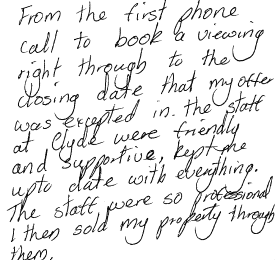 From the first phone
call to book a viewing
right through to the
closing date that my offer
was excepted in. the staff
at Clyde were friendly
and supportive, kept me
upto date with everything.
The staff were so professional
I then sold my property through
them.